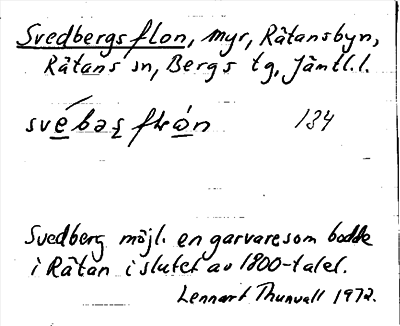 Svedbergsflon, myr, Rätansbyn,
Rätans sn, Bergs tg, Jämtl.l.
134
Svedberg möjl. en garvare som bodde
i Rätan i slutet av 1800-talet.
Lennart Thunvall 1972.